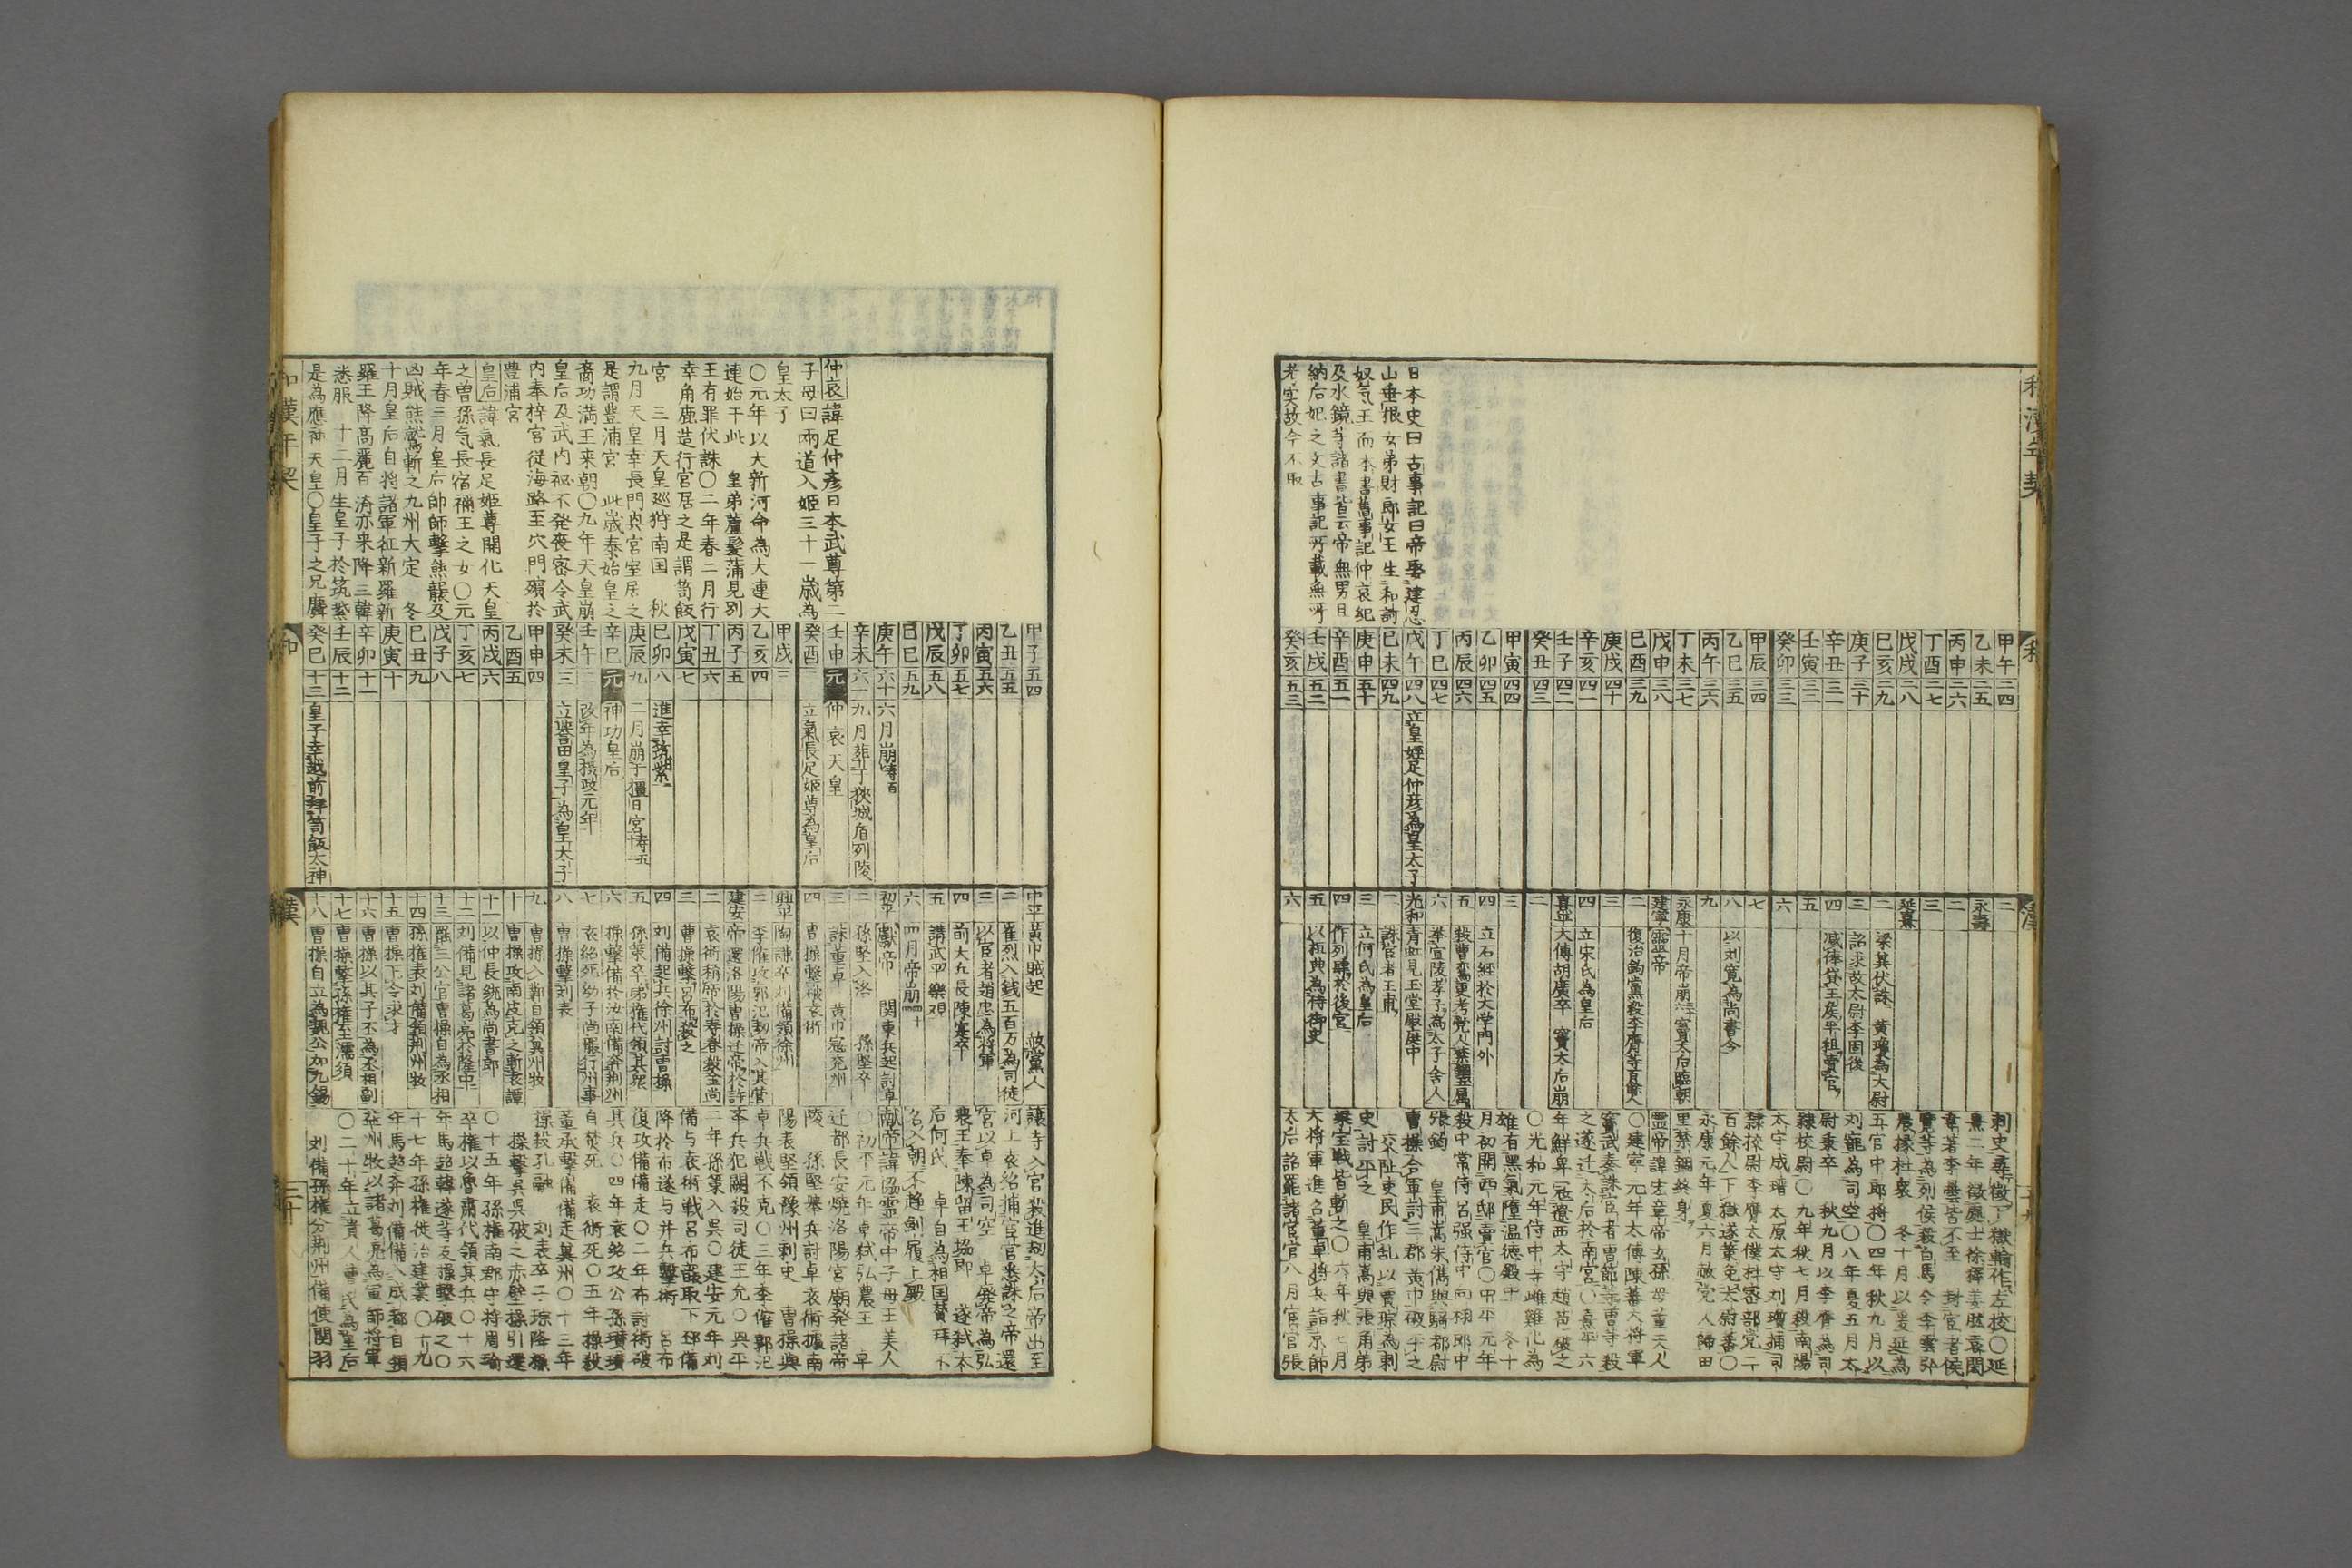 和漢年契
日本史曰古事記曰帝娶建忍
山垂根女弟財郎女王生和訶
奴気王而本書旧事記仲哀紀
及水鏡等諸書皆云帝無男且
納后妃之文古事記所載無所
考実故今不取
和
甲午三四
乙未二五
丙申二六
丁酉二七
戊戌二八
己亥二九
庚子三十
辛丑三一
壬寅三二
癸卯三三
甲辰三四
乙巳三五
丙午三六
丁未三七
戊申三八
己酉三九
庚戌四十
辛亥四一
壬子四二
癸丑四三
甲寅四四
乙卯四五
丙辰四六
丁巳四七
戊午四八立皇姪足仲彦為皇太子
己未四九
庚申五十
辛酉五一
壬戌五二
癸亥五三
漢
二
永壽
二
三
延熹
二 梁冀伏誅 黄瓊為大尉
三 詔求故太尉李固後
四 减俸貸王侯半租賣官
五
六
七
八 以刘寛為尚書令
九
永康 十月帝崩 竇太后臨朝
建寧 靈帝
二 復治鈎黨殺李膺等百餘人
三
四 立宋氏為皇后
熹平 大傅胡廣卒 竇太后崩
二
三
四 立石経於大学門外
五 殺曹鸞更考党人
六 举宣陵孝子為太子舎人
光和 青虹見玉堂殿庭中
二 誅宦者王甫
三 立何氏為皇后
四 作列肆於後宮
五 以桓典為侍御史
六
刘寵為司空〇八年夏五月太
尉秉卒 秋九月以李膺為司
隷校尉〇九年秋七月殺南陽
太守成瑨太原太守刘瓆捕司
隷校尉李膺太僕杜密部党二
百餘人下獄遂策免太尉蕃〇
永康元年夏六月赦党人歸田
里禁錮終身
〇建寧元年太傅陳蕃大将軍
竇武奏誅宦者曹節等曹等殺
之遂迁太后於南宮〇熹平六
年鮮卑冦遼西太守趙苞破之
〇光和元年侍中寺雌雞化為
雄有黒氣墮温德殿中 冬十
月初開西邸賣官〇中平元年
殺中常侍呂强侍中向栩郎中
張鈞 皇甫嵩朱儁與騎都尉
曹操合軍討三郡黄巾破平之
交阯吏民作乱以賈琮為刺
史討平之 皇甫嵩與張角弟
梁宝戦皆斬之〇六年秋七月
大将軍進召董卓将兵詣京師
太后詔罷諸宦官八月宦官張
仲哀諱足仲彦日本武尊第二
子母曰両道入姫三十一歳為
皇太子
〇元年以大新河命為大連大
連始于此 皇弟蘆髪蒲見別
王有罪伏誅〇二年春二月行
幸角鹿造行宮居之是謂笥飯
宮 三月天皇巡狩南国 秋
九月天皇幸長門興宮室居之
是謂豊浦宮 此歳秦始皇之
裔功満王来朝〇九年天皇崩
皇后及武内祕不発喪密令武
内奉梓宮従海路至穴門殯於
豊浦宮
皇后諱氣長足姫尊開化天皇
之曽孫気長宿禰王之女〇元
年春三月皇后帥師撃熊襲及
凶賊熊鷲斬之九州大定 冬
十月皇后自将諸軍征新羅新
羅王降高麗百済亦来降三韓
悉服 十二月生皇子於筑紫
是為應神天皇〇皇子之兄麛
和漢年契
甲子五四
乙丑五五
丙寅五六
丁卯五七
戊辰五八
己巳五九
庚午六十六月崩
辛未六一九月葬于狭城盾列陵
壬申元仲哀天皇
癸酉二立氣長足姫尊為皇后
甲戌三
乙亥四
丙子五
丁丑六
戊寅七
己卯八進幸筑紫
庚辰九二月崩于橿日宮
辛巳元神功皇后
壬午二改年為摂政元年
癸未三立誉田皇子為皇太子
甲申四
乙酉五
丙戌六
丁亥七
戊子八
己丑九
庚寅十
辛卯十一
壬辰十二
癸巳十三皇子幸越前拜笥飯太神
和
中平 黄巾賊起 赦黨人
二 崔烈入銭五百万為司徒
三 以宦者趙忠為将軍
四 前大丘長陳寔卒
五 講武平樂观
六 四月帝崩
初平 獻帝 関東兵起討卓
二 孫堅入洛 孫堅卒
三 誅董卓 黄巾冦兖州
四 曹操撃破袁術
興平 陶謙卒刘備領徐州
二 李傕攻郭汜刼帝入其営
建安 帝還洛陽曹操迁帝於許
二 袁術稱帝於寿春
三 曹操撃呂布殺之
四 刘備起兵徐州討曹操
五 孫策卒弟権代領其衆
六 操撃備於汝南備奔荆州
七 袁紹死幼子尚襲行州事
八 曹操撃刘表
九 曹操入鄴自領冀州牧
十 曹操攻南皮克之斬袁譚
十一 以仲長統為尚書郎
十二 刘備見諸葛亮於隆中
十三 罷三公官曹操自為丞相
十四 孫権表刘備領荆州牧
十五 曹操下令求才
十六 曹操以其子丕為丞相副
十七 曹操撃孫権至濡須
十八 曹操自立為魏公加九錫
漢
讓等入宮殺進刼太后帝出至
河上袁紹捕宦官悉誅之帝還
宮以卓為司空 卓廃帝為弘
農王奉陳留王協即 遂弑太
后何氏 卓自為相国賛拜不
名入朝不趋剣履上殿
献帝諱協靈帝中子母王美人
〇初平元年卓弑弘農王 卓
迁都長安燒洛陽宮廟発諸帝
陵 孫堅舉兵討卓袁術據南
陽表堅領豫州刺史 曹操與
卓兵戦不克〇三年李傕郭汜
等兵犯闕殺司徒王允〇興平
二年孫策入呉〇建安元年刘
備与袁術戦呂布襲取下邳備
降於布遂与并兵撃術 呂布
復攻備備走〇二年布討術破
其兵〇四年袁紹攻公孫瓉瓉
自焚死 袁術死〇五年操殺
董承撃備備走冀州〇十三年
操殺孔融 刘表卒二子琮降操
操撃呉呉破之赤壁操引還
〇十五年孫権南郡守将周瑜
卒権以魯肅代領其兵〇十六
年馬超韓遂等反操撃破之〇
十七年孫権徙治建業〇十九
年馬超奔刘備備入成都自領
益州牧以諸葛亮為軍師将軍
〇二十年立貴人曹氏為皇后
刘備孫権分荆州備使関羽